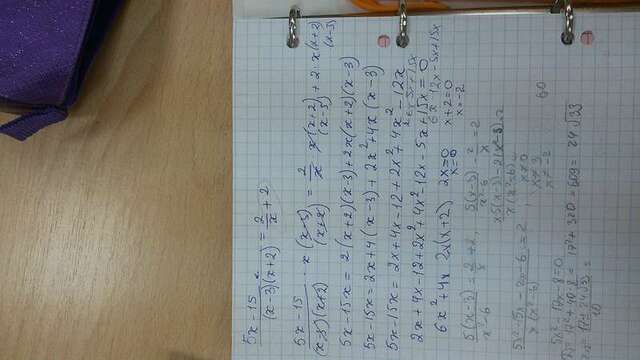 5x-15 / (x-3)(x+2) = 2/x + 2
5x-15 / (x-3)(x+2) · x (x-3)(x+2) = 2/x x(x+2)(x-3) + 2·x(x+2)(x-3)
5x-15x = 2(x+2)(x-3)+2x(x+2)(x-3)
5x-15x = 2x+4(x-3)+2x²+4x(x-3)
5x-15x = 2x+4x-12+2x²+4x²-12x
2x+4x-12+2x²+4x²-12x-5x+15x=0
6x²+4x 2x(x+2) 2x=0
x=0
x+2=0
x=-2
5(x-3) / x²-6 = 2/x + 2, 5(x-3) / x²-6 - 2/x = 2
x5(x-3)-2(x²-6) / x(x²-6) = 2
5x²-15x-2x-6 / x(x²-6) = 2
x≠0
x≠3
x≠-2
5x²-17x-8=0